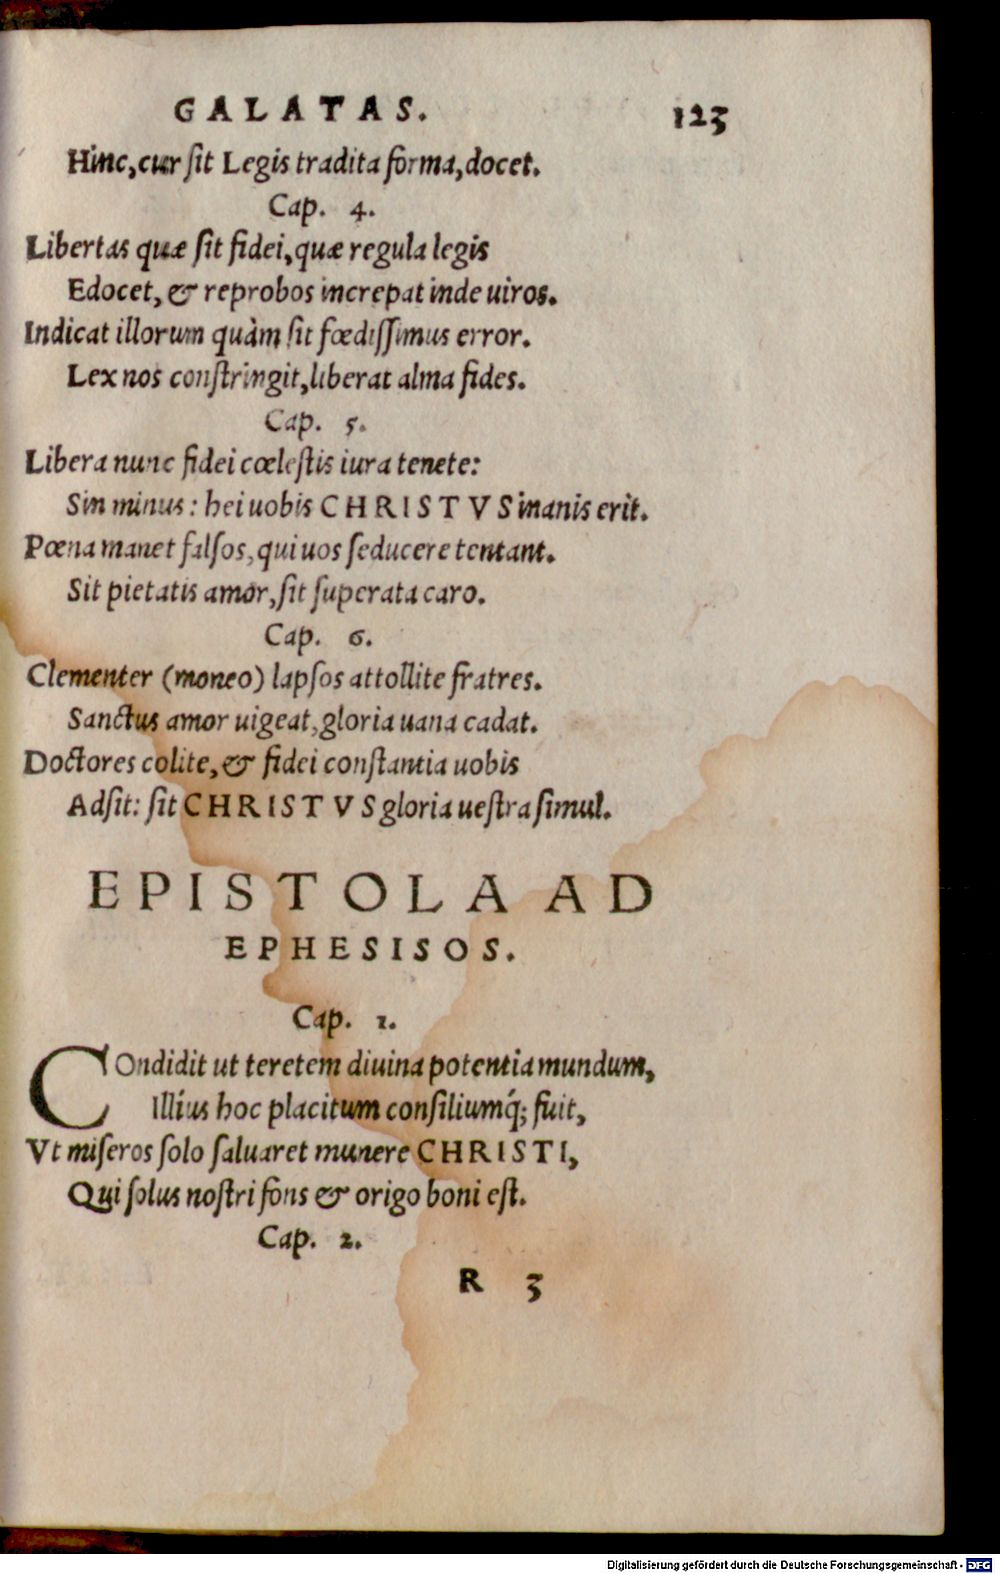 GALATAS. 123
Hinc, cur sit Legis tradita forma, docet.
Cap. 4.
Libertas quæ sit fidei, quæ regula legis
Edocet, & reprobos increpat inde uiros.
Indicat illorum quàm sit fœdissimus error.
Lex nos constringit, liberat alma fides.
Cap. 5.
Libera nunc fidei cœlestis iura tenete:
Sin minus: hei uobis CHRISTVS inanis erit.
Pœna manet falsos, qui uos seducere tentant.
Sit pietatis amor, sit superata caro.
Cap. 6.
Clementer (moneo) lapsos attollite fratres.
Sanctus amor uigeat, gloria uana cadat.
Doctores colite, & fidei constantia uobis
Adsit: sit CHRISTVS gloria uestra simul.
EPISTOLA AD
EPHESISOS.
Cap. 1.
COndidit ut teretem diuina potentia mundum,
Illíus hoc placitum consiliumq́; fuit,
Vt miseros solo saluaret munere CHRISTI,
Qui solus nostri fons & origo boni est.
Cap. 2.
R 3
Digitalisierung gefördert durch die Deutsche Forschungsgemeinschaft - DFG